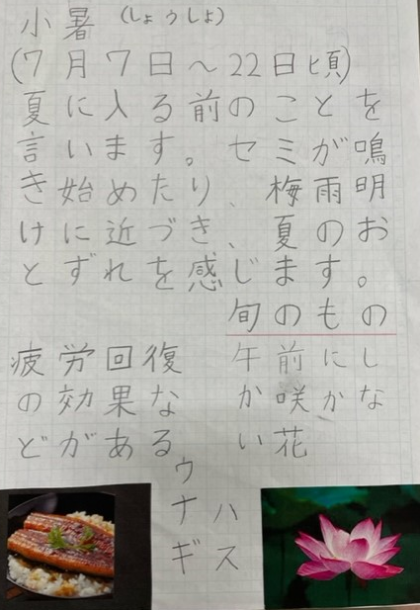 小暑(しょうしょ)
(7月7日～22日頃)
夏に入る前のことを
言います。セミが鳴
き始めたり、梅雨明
けに近づき、夏のお
とずれを感じます。
旬のもの
疲労回復
の効果な
どがある
ウナギ
午前にし
か咲かな
い花
ハス